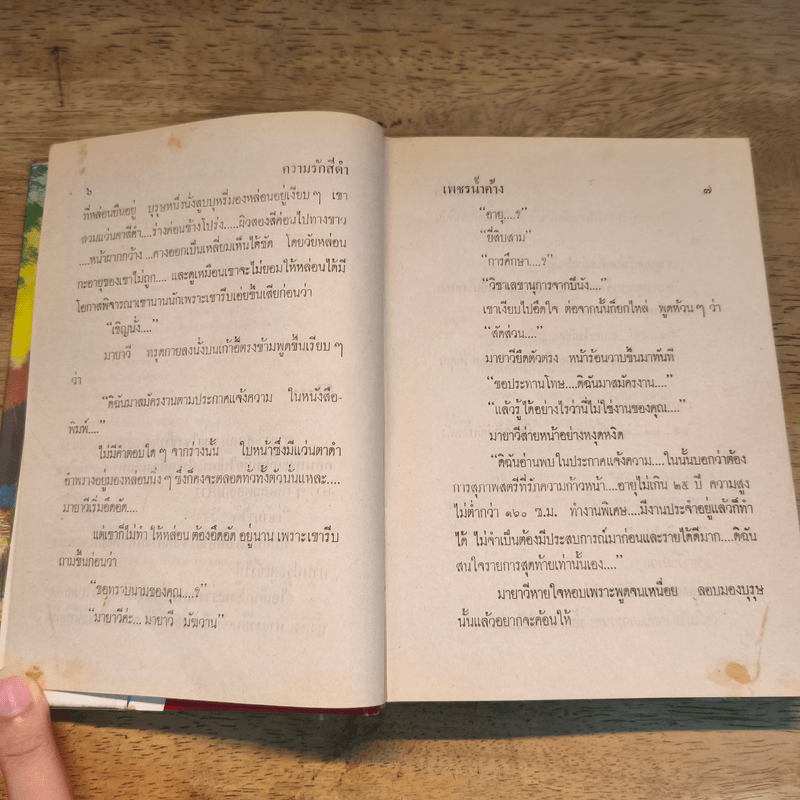 ๖ ความรักสีดำ
ที่หล่อนยืนอยู่ บุรุษหนึ่งนั่งสูบบุหรี่มองหล่อนอยู่เงียบ ๆ เขา
สวมแว่นตาสีดำ....ร่างค่อนข้างโปร่ง.....ผิวสองสีค่อนไปทางขาว
....หน้าผากกว้าง....คางออกเป็นเหลี่ยมเห็นได้ชัด โดยวัยหล่อน
กะอายุของเขาไม่ถูก.... และดูเหมือนเขาจะไม่ยอมให้หล่อนได้มี
โอกาสพิจารณาเขานานนักเพราะเขารีบเอ่ยขึ้นเสียก่อนว่า
“เชิญนั่ง....”
มายาวี ทรุดกายลงนั่งบนเก้าอี้ตรงข้ามพูดขึ้นเรียบ ๆ
ว่า
“ดิฉันมาสมัครงานตามประกาศแจ้งความ ในหนังสือ-
พิมพ์....”
ไม่มีคำตอบใด ๆ จากร่างนั้น ใบหน้าซึ่งมีแว่นตาดำ
อำพรางอยู่มองหล่อนนิ่ง ๆ ซึ่งก็คงจะตลอดทั่วทั้งตัวนั่นแหละ....
มายาวีเริ่มอึดอัด....
แต่เขาก็ไม่ทำ ให้หล่อน ต้องอึดอัด อยู่นาน เพราะเขารีบ
ถามขึ้นก่อนว่า
“ขอทราบนามของคุณ....?”
“มายาวีค่ะ... มายาวี มัฆวาน”
เพชรน้ำค้าง ๗
“อายุ....?”
“ยี่สิบสาม”
“การศึกษา....?”
“วิชาเลขานุการจากปีนัง....”
เขาเงียบไปอึดใจ ต่อจากนั้นก็ยกไหล่ พูดห้วน ๆ ว่า
“สัดส่วน....”
มายาวียืดตัวตรง หน้าร้อนวาบขึ้นมาทันที
“ขอประทานโทษ....ดิฉันมาสมัครงาน....”
“แล้วรู้ได้อย่างไรว่านี่ไม่ใช่งานของคุณ....”
มายาวีส่ายหน้าอย่างหงุดหงิด
“ดิฉันอ่านพบในประกาศแจ้งความ....ในนั้นบอกว่าต้อง
การสุภาพสตรีที่รักความก้าวหน้า....อายุไม่เกิน ๒๕ ปี ความสูง
ไม่ต่ำกว่า ๑๖๐ ซ.ม. ทำงานพิเศษ....มีงานประจำอยู่แล้วก็ทำ
ได้ ไม่จำเป็นต้องมีประสบการณ์มาก่อนและรายได้ดีมาก....ดิฉัน
สนใจรายการสุดท้ายเท่านั้นเอง....”
มายาวีหายใจหอบเพราะพูดจนเหนื่อย ลอบมองบุรุษ
นั้นแล้วอยากจะค้อนให้